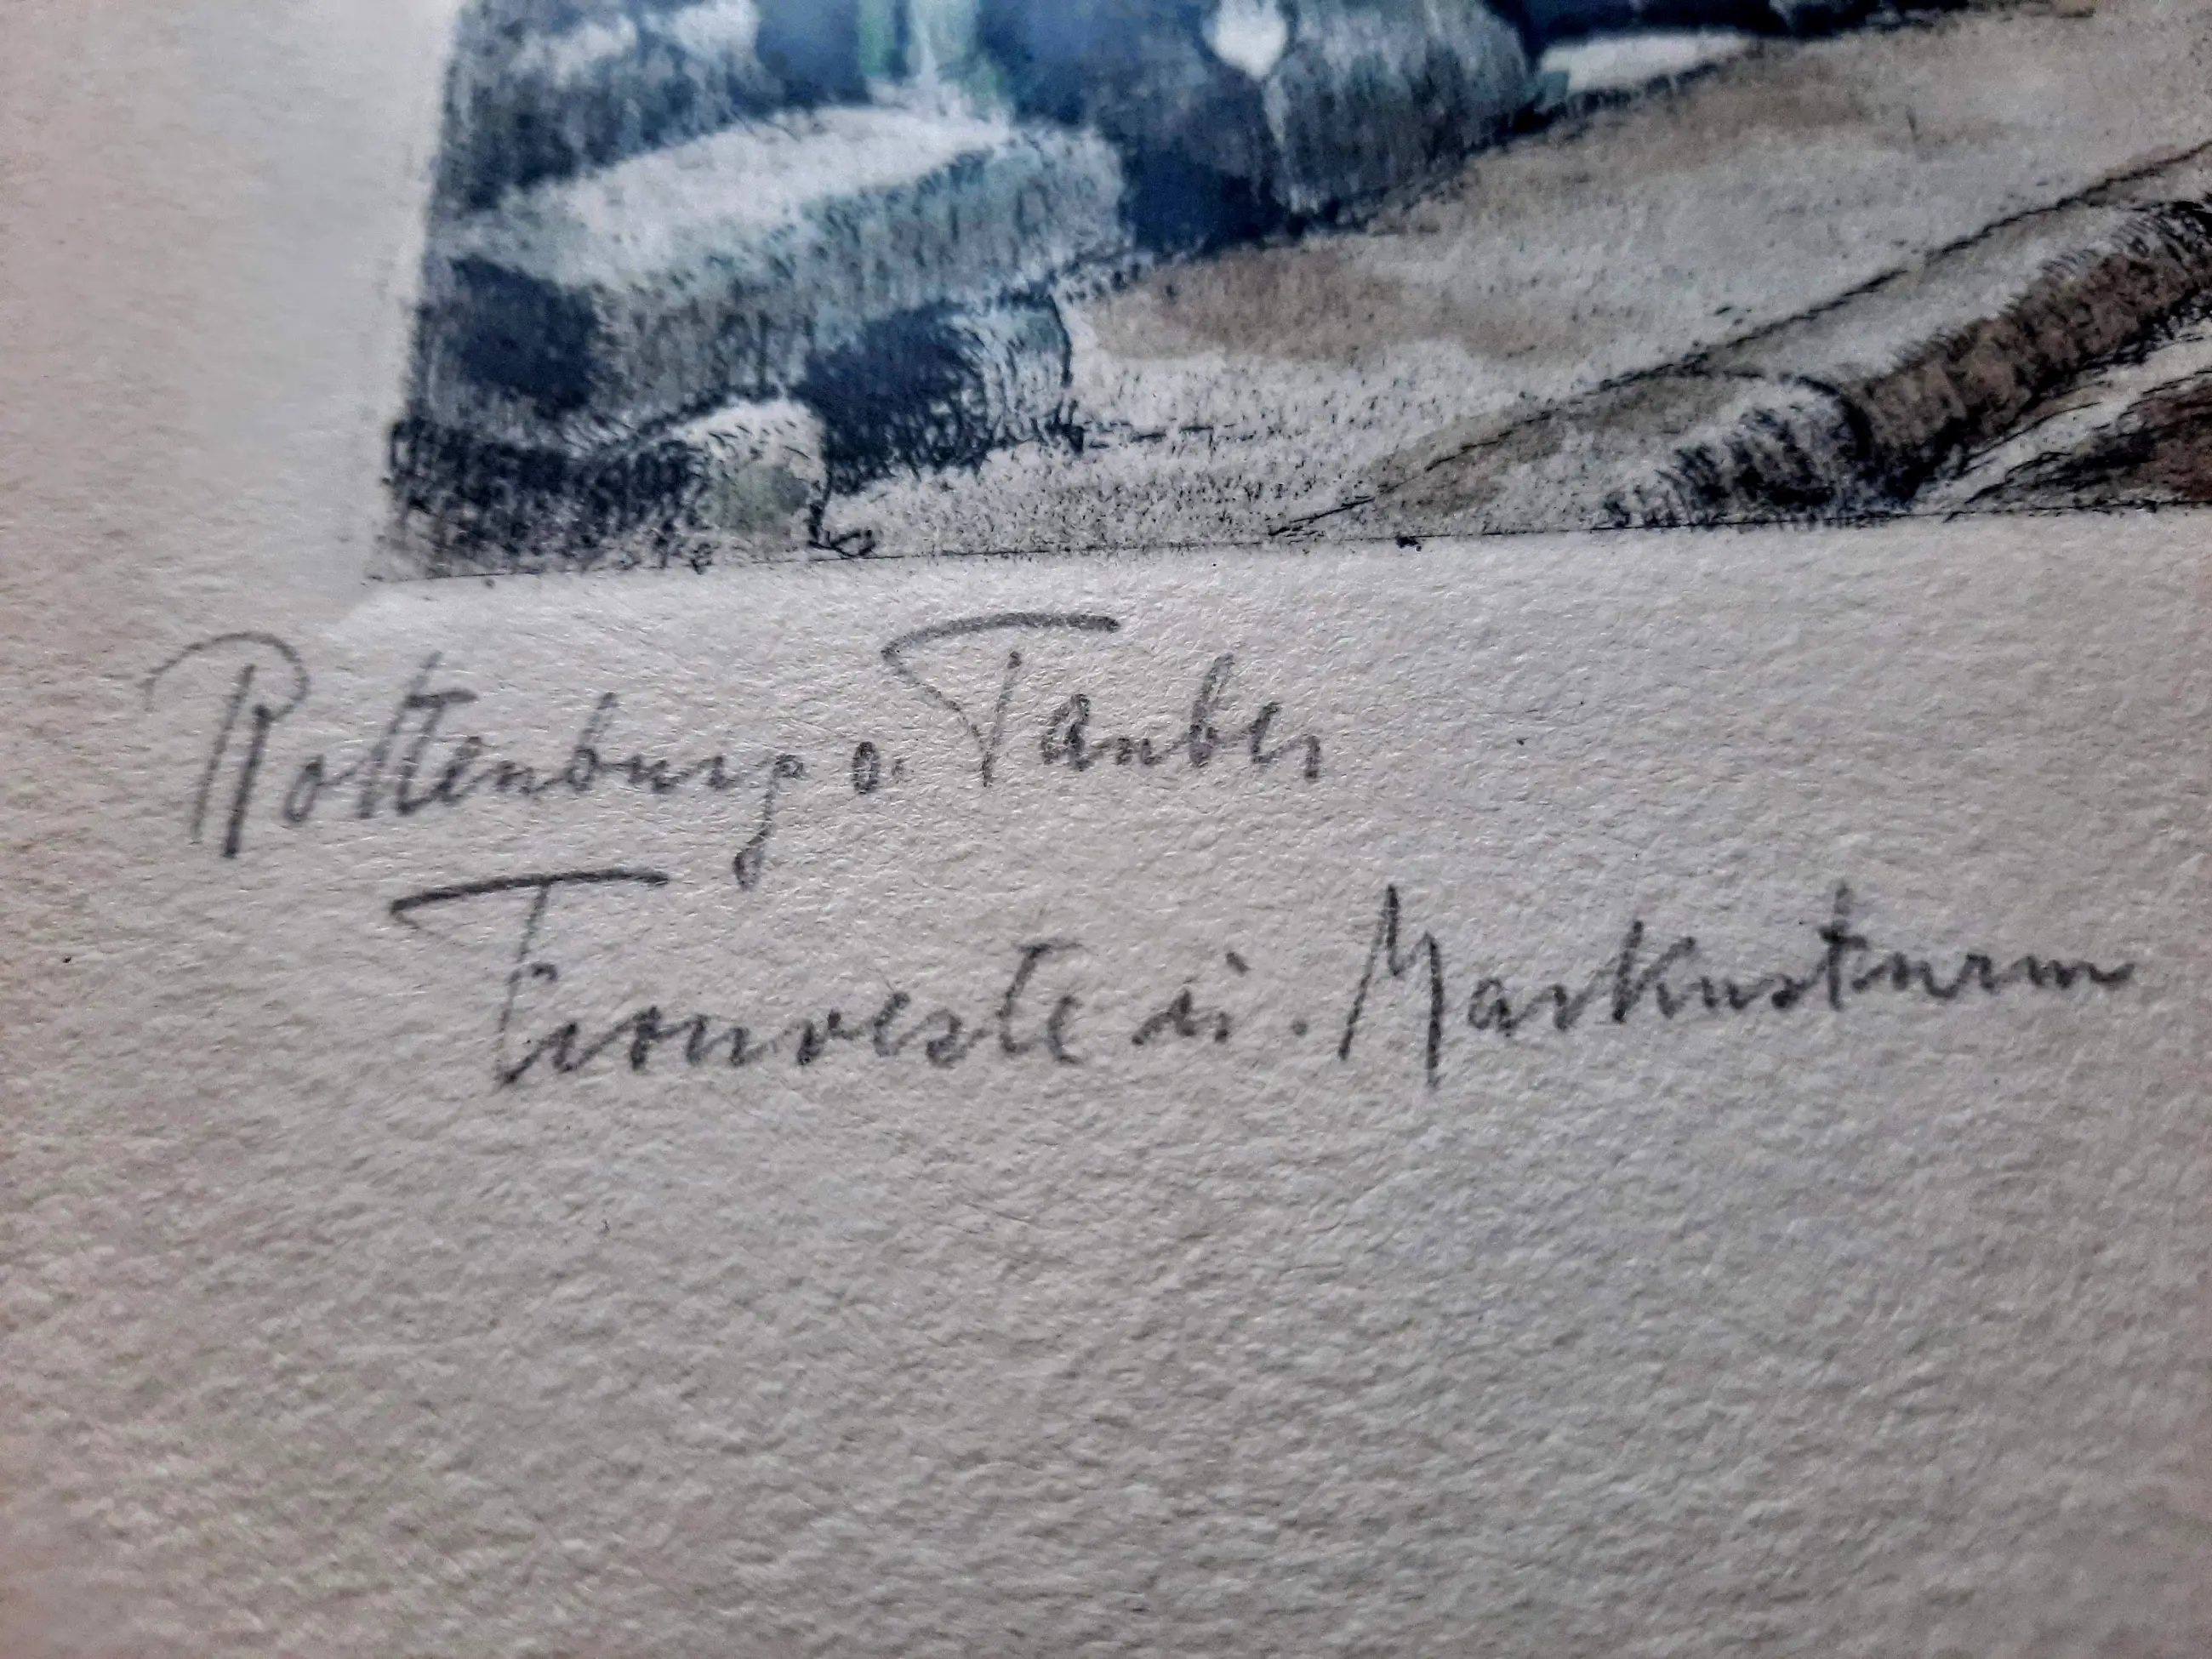 Rottenburg o. Tauber
Fronveste u. Markusturm